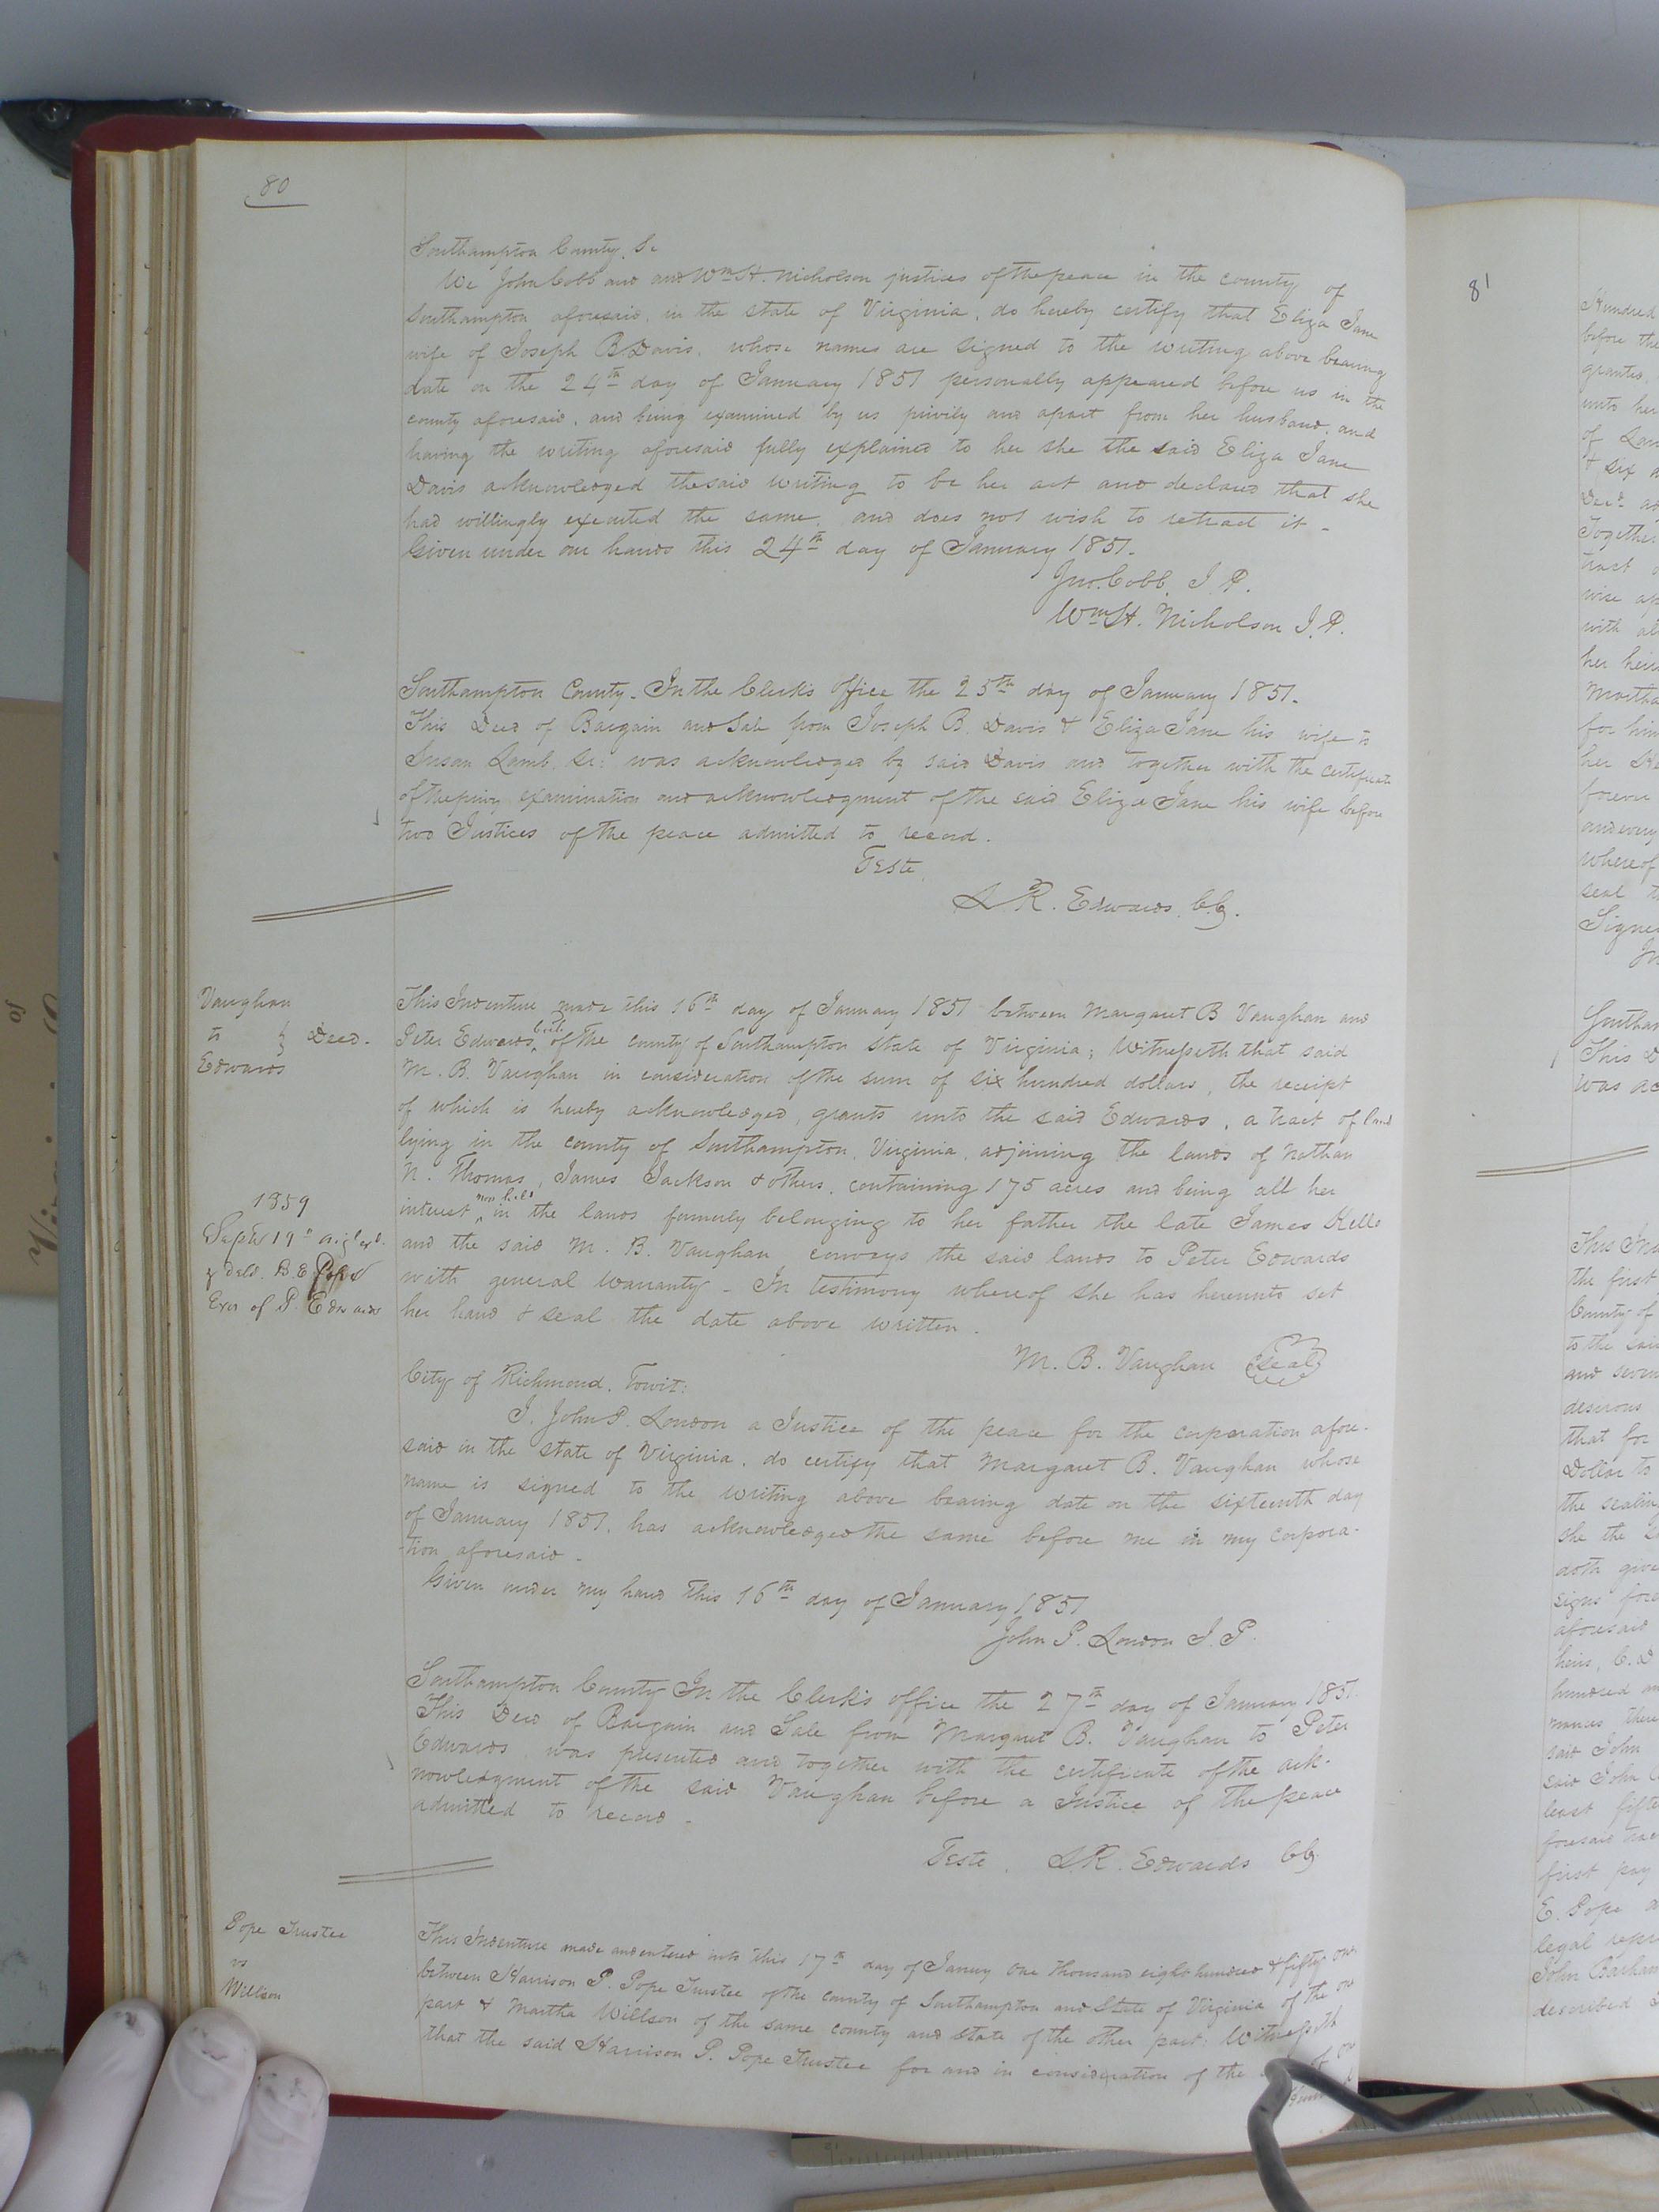 80
Southampton County, Sc
We John Cobb and and Wm H. Nicholson justices of the peace in the county of
Southampton aforesaid, in the state of Virginia, do hereby certify that Eliza Jane
wife of Joseph B. Davis, whose names are signed to the writing above bearing
date on the 24th day of January 1851 personally appeared before us in the
county aforesaid, and being examined by us privily and apart from her husband, and
having the writing aforesaid fully explained to her she the said Eliza Jane
Davis acknowledged the said writing to be her act and declared that she
had willingly executed the same, and does not wish to retract it -
Given under our hands this 24th day of January 1851.
Jno. Cobb, J. P.
Wm H. Nicholson J. P.
Southampton County - In the Clerk's office the 25th day of January 1851.
This Deed of Bargain and Sale from Joseph B. Davis & Eliza Jane his wife to
Susan Lamb, Sr: was acknowledged by said Davis and together with the certificate
of the privy examination and acknowledgment of the said Eliza Jane his wife before
two Justices of the peace admitted to record.
Teste
L. R. Edwards, C.C.
Vaughan
to } Deed.
Edwards
This Indenture made this 16th day of January 1851 between Margaret B Vaughan and
Peter Edwards, both of the county of Southampton state of Virginia; Witnesseth that said
M. B. Vaughan in consideration of the sum of six hundred dollars, the receipt
of which is hereby acknowledged, grants unto the said Edwards, a tract of land
lying in the county of Southampton, Virginia, adjoining the lands of Nathan
N. Thomas, James Jackson & others, containing 175 acres and being all her
interest, now held in the lands formerly belonging to her father the late James Kello
and the said M. B. Vaughan conveys the said lands to Peter Edwards
with general Warranty - In testimony whereof she has hereunto set
her hand & seal the date above written.
1859
Exor of P. Edwards
M. B. Vaughan (Seal)
City of Richmond, Towit:
I, John P. London a Justice of the peace for the corporation afore-
said in the state of Virginia, do certify that Margaret B. Vaughan whose
name is signed to the writing above bearing date on the sixteenth day
of January 1851, has acknowledged the same before me in my corpora-
tion aforesaid -
Given under my hand this 16th day of January 1851
John P. London J. P.
Southampton County In the Clerk's office the 27th day of January 1851.
This Deed of Bargain and Sale from Margaret B. Vaughan to Peter
Edwards, was presented and together with the certificate of the ack-
nowledgment of the said Vaughan before a Justice of the peace
admitted to record -
Teste, L R. Edwards CC.
Pope Trustee
vs
Willson
This Indenture made and entered into this 17th day of Janury one thousand eight hundred & fifty one
between Harrison P. Pope Trustee of the county of Southampton and State of Virginia of the on
part & Martha Willson of the same county and state of the other part: Witnesseth
that the said Harrison P. Pope Trustee for and in consideration of the
81
Hundred
before the
grantes,
unto her
of Lan
& six a
Together
tract o
wise ap
with al
her heirs
Martha
for him
her
forever
and every
whereof
seal
Signe
Southam
This D
was ac
This Ind
the first
County of
to the said
and seven
desirous
that for
Dollar to
the sealing
she the
doth give
signs fore
aforesaid
heirs, C. D
hundred an
nances there
said John
said John
least fifte
foresaid trac
first pay
E. Pope a
legal repre
John Barham
described